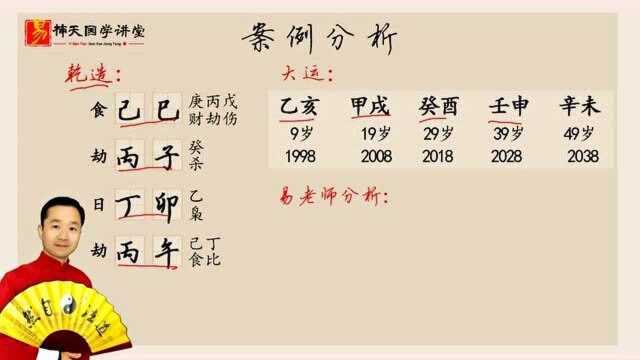 易 楠天国学讲堂
案例分析
乾造：
食 己巳 庚丙戊
财劫伤
劫 丙子 癸
杀
日 丁卯 乙
枭
劫 丙午 己丁
食比
大运：
乙亥 甲戌 癸酉 壬申 辛未
9岁 19岁 29岁 39岁 49岁
1998 2008 2018 2028 2038
易老师分析：
自 法 道